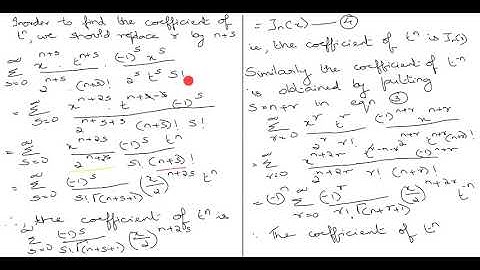 Inorder to find the coefficient of
tⁿ, we should replace r by n+s
∞Σs=0 x^(n+s) · t^(n+s) / 2^(n+s) (n+s)! · (-1)^s x^s / 2^s t^s s!
= ∞Σs=0 x^(n+2s) t^(n+s-s) (-1)^s / 2^(n+s+s) (n+s)! s!
= ∞Σs=0 x^(n+2s) (-1)^s tⁿ / 2^(n+2s) s! (n+s)!
= ∞Σs=0 (-1)^s / s! Γ(n+s+1) (x/2)^(n+2s) tⁿ
∴ the coefficient of tⁿ is
∞Σs=0 (-1)^s / s! Γ(n+s+1) (x/2)^(n+2s)
= Jn(x) — ④
ie, the coefficient of tⁿ is Jn(x)
Similarly the coefficient of t⁻ⁿ
is obtained by putting
s=n+r in eqn ③
∞Σr=0 x^r t^r / 2^r r! (-1)^(n+r) x^(n+r) / 2^(n+r) t^(n+r) (n+r)!
= ∞Σr=0 x^(n+2r) t^(r-n-r) (-1)^(n+r) / 2^(n+2r) r! (n+r)!
= (-1)ⁿ ∞Σr=0 (-1)^r / r! Γ(n+r+1) (x/2)^(n+2r) t⁻ⁿ
∴ The coefficient of t⁻ⁿ